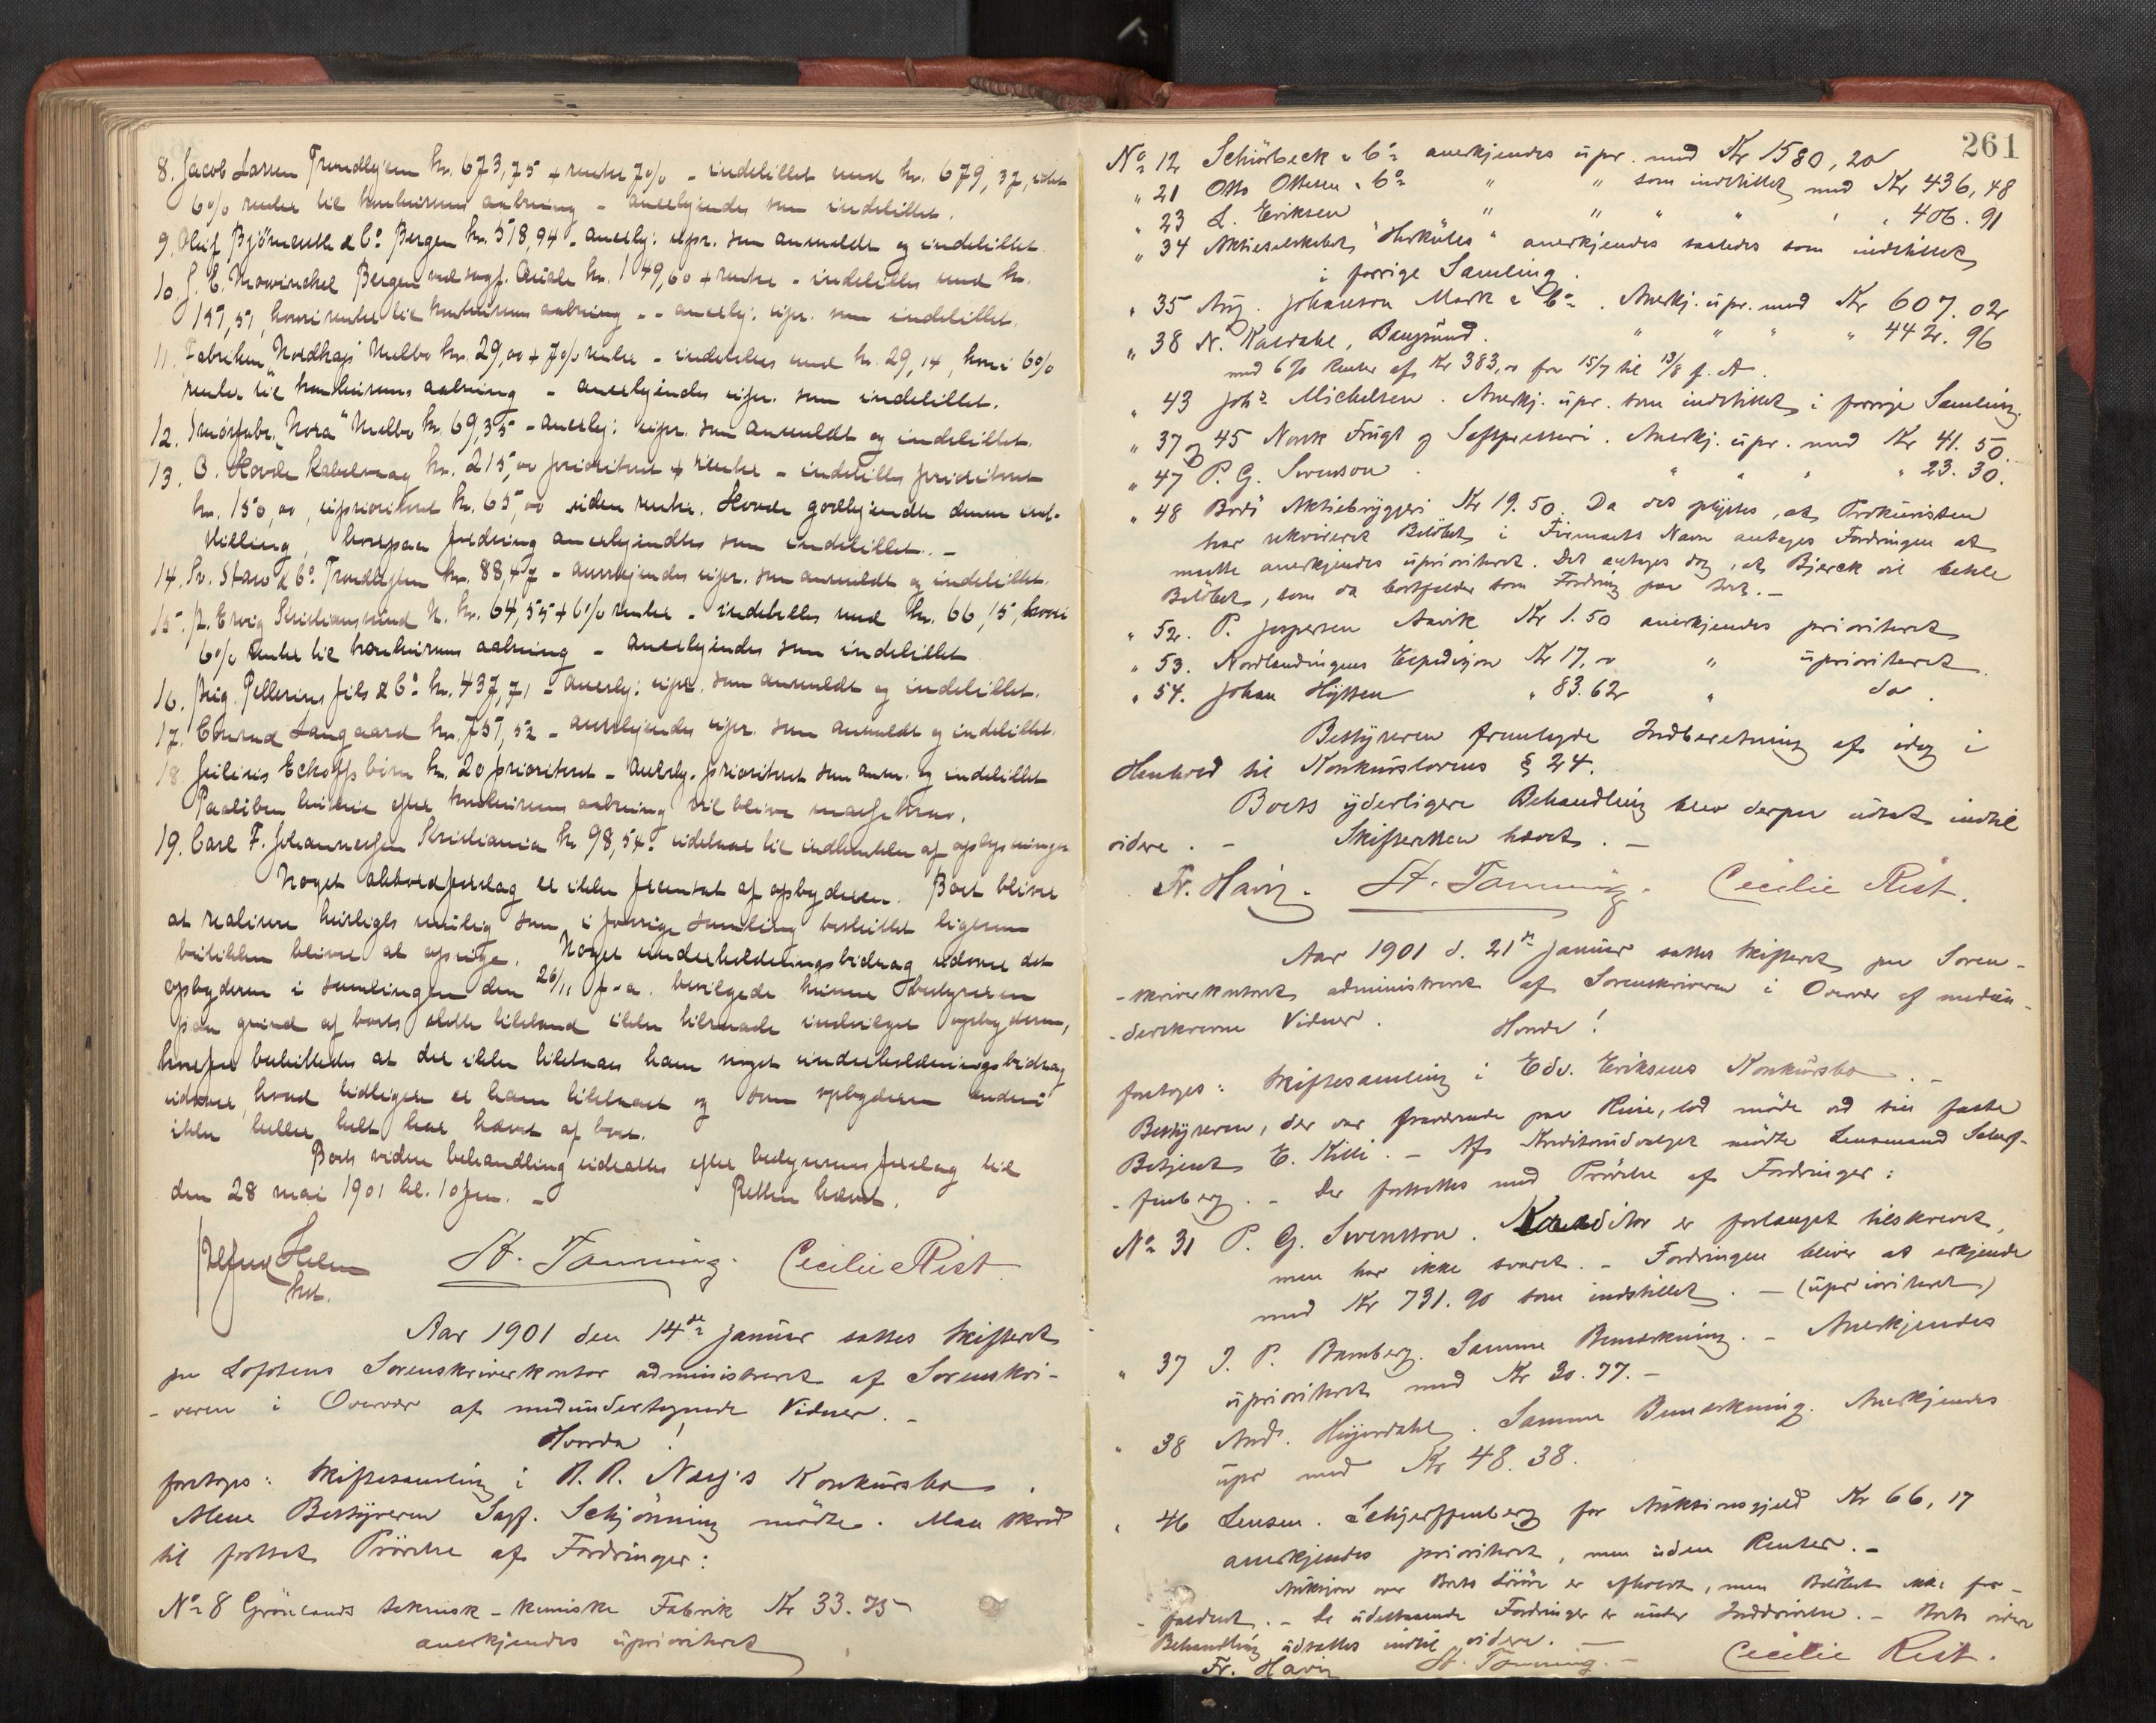 8. Jacob Larsen Trondhjem kr. 673,75 + renter 7% - indstillet med kr. 679,37, idet
6% renter til konkursens aabning - anerkjendes som indstillet.
9. Oluf Bjørneseth & Co. Bergen kr. 518,94 - anerkj. upr. som anmeldt og indstillet.
10. J. E. Mowinckel Bergen ved sagf. Quale kr. 149,60 + renter - indstilles med kr.
151,51, hvori renter til konkursens aabning - - anerkj. upr. som indstillet.
11. Fabriken "Nordkap" Melbo kr. 29,00 + 7% renter - indstilles med kr. 29,14, hvori 6%
renter til konkursens aabning - anerkjendes upr. som indstillet.
12. Smørfabr. "Nora" Melbo kr. 69,35 - anerkj. upr. som anmeldt og indstillet.
13. O. Hovde Kabelvaag kr. 215,00 prioriteret + renter - indstilles prioriteret
kr. 150,00, uprioriteret kr. 65,00 uden renter. Hovde godkjendte denne ind-
stilling, hvorpaa fordring anerkjendtes som indstillet. -
14. Sv. Staw & Co. Trondhjem kr. 88,47 - anerkjendes upr. som anmeldt og indstillet.
15. N. Ervig Kristianssund N. kr. 64,55 + 6% renter - indstilles med kr. 66,15, hvori
6% renter til konkursens aabning - anerkjendes som indstillet
16. Aug. Pellerins fils & Co. kr. 437,71 - anerkj. upr. som anmeldt og indstillet.
17. Conrad Langaard kr. 757,52 - anerkjendes upr. som anmeldt og indstillet.
18 Julius Eckhoffs kr. 20 prioriteret - anerkj. prioriteret som anm. og indstillet
Paaløben husleie efter konkursens aabning vil blive massekrav.
19. Carl F. Johannessen Kristiania kr 98,54. udstaar til indhentelse af oplysninger
Noget akkordforslag er ikke fremsat af opbyderen. Boet bliver
at realisere hurtigst mulig som i forrige samling besluttet ligesom
butikken bliver at opsige. Noget underholdningsbidrag udover det
opbyderen i samlingen den 26/11 f.a. bevilgede kunne bestyreren
paa grund af boets slette tilstand ikke tilraade indvilget opbyderen,
hvorfor besluttedes at der ikke tilstaaes ham noget underholdningsbidrag
udover, hvad tidligere er ham tilstaaet og som opbyderen endnu
ikke heller helt har hævet af boet.
Boets videre behandling udsattes efter bestyrerens forslag til
den 28 mai 1901 kl. 10 fm. - Retten hævet.
Alfred Helm St. Tamming. Cecilie Rist
kst.
Aar 1901 den 14de Januar sattes Skifteret
paa Lofotens Sorenskriverkontor administreret af Sorenskri-
-veren i Overvær af medundertegnede Vidner. -
Hvorda!
foretoges: Skiftesamling i R. R. Næss's Konkursbo.
Alene Bestyreren Sagf. Schjønning mødte. Man skred
til fortsat Prøvelse af Fordringer:
No 8 Grønlands teknisk-kemiske Fabrik Kr 33.75
anerkjendes uprioriteret
261
No 12 Schiørbeck & Co anerkjendes upr. med Kr 1580,20
" 21 Otto Ottesen & Co " " som indstillet med Kr 436,48
" 23 L. Eriksen " " " " " " 406.91
" 34 Aktieselskabet "Herkules" anerkjendes saaledes som indstillet
i forrige Samling.
" 35 Aug. Johanson Mark & Co. Anerkj. upr. med Kr 607.02
" 38 N. Kaldahl, Bangsund. " " " " 442.96
med 6% Renter af Kr 383,00 fra 15/7 til 13/8 f. A.
" 43 Johs Michelsen. Anerkj. upr. som indstillet i forrige Samling.
" 37 og 45 Norsk Frugt og Saftpresseri. Anerkj. upr. med Kr 41.50.
" 47 P. G. Svenson. " " " " 23.30.
" 48 Bodø Aktiebryggeri Kr 19.50. Da det oplystes, at Prokuristen
har rekvireret Beløbet i Firmaets Navn antages Fordringen at
maatte anerkjendes uprioriteret. Det antages dog, at Bjerck vil betale
Beløbet, som da bortfalder som Fordring paa Boet. -
" 52. P. Jespersen Aavik Kr 1.50 anerkjendes prioriteret
" 53. Nordlændingens Expedisjon Kr 17,00 " uprioriteret.
" 54. Johan Hytten " 83.62 " do.
Bestyreren fremlagde Indberetning af idag i
Henhold til Konkurslovens § 24.
Boets yderligere Behandling blev derpaa udsat indtil
videre. - Skifteretten hævet. -
Fr. Havig. St. Tamming. Cecilie Rist.
Aar 1901 d. 21de Januar sattes Skifteret paa Soren-
-skriverkontoret administreret af Sorenskriveren i Overvær af medun-
-derskrevne Vidner. Hvorda!
foretoges: Skiftesamling i Edv. Eriksens Konkursbo. -
Bestyreren, der var fraværende paa Reise, lod møde ved sin faste
Betjent E. Killi. - Af Kreditorudvalget mødte Lensmand Scherf-
-fenberg. - Der fortsattes med Prøvelse af Fordringer:
No 31 P. G. Svensson. Kreditor er forlanget tilskrevet,
men har ikke svaret. - Fordringen bliver at erkjende
med Kr 731.90 som indstillet. - (uprioriteret)
" 37 J. P. Bamberg. Samme Bemærkning. - Anerkjendes
uprioriteret med Kr 30.77. -
" 38 And. Hujordahl. Samme Bemærkning. Anerkjendes
upr med Kr 48.38.
" 46 Lensm. Schjerffenberg for Auktionsgjæld Kr 66,17
anerkjendes prioriteret, men uden Renter. -
Auktion over Boets Løsøre er afholdt, men Beløbet ikke for-
-faldent. - De udestaaende Fordringer er under Inddrivelse. - Boets videre
Behandling udsattes indtil videre. -
Fr. Havig St. Tamming. - Cecilie Rist.